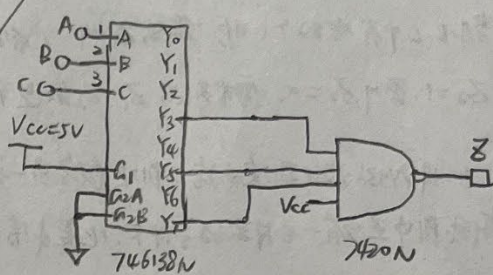 A 1 A Y0
B 2 B Y1
C 3 C Y2
Y3
Vcc=5V
Y4
G1 Y5
G2A Y6
G2B Y7
Vcc
Z
746138N
7420N